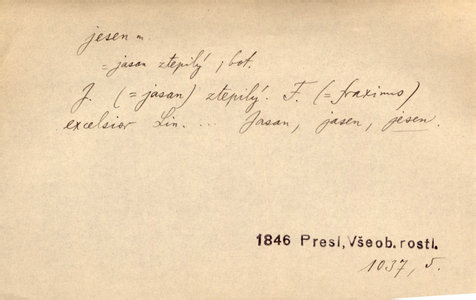 jesen m.
= jasan ztepilý; bot.
J. (= jasan) ztepilý. F. (= fraxinus)
excelsior Lin. ... Jasan, jasen, jesen.
1846 Presl, Všeob. rostl.
1037, 5.